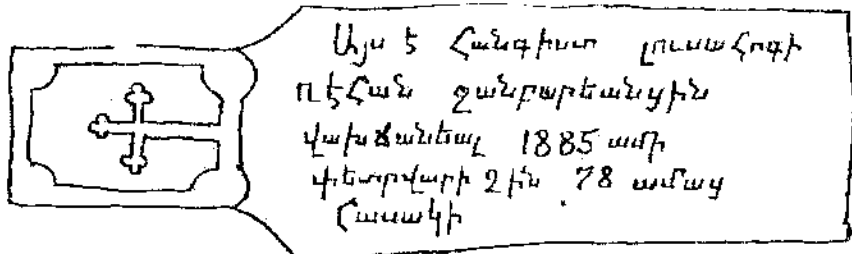 Այս է Հանգիստ լուսահոգի
ՌէՀան Ջանբարեանցին
վախճանեալ 1885 ամի
փետրվարի 2 ին 78 ամաց
Հասակի